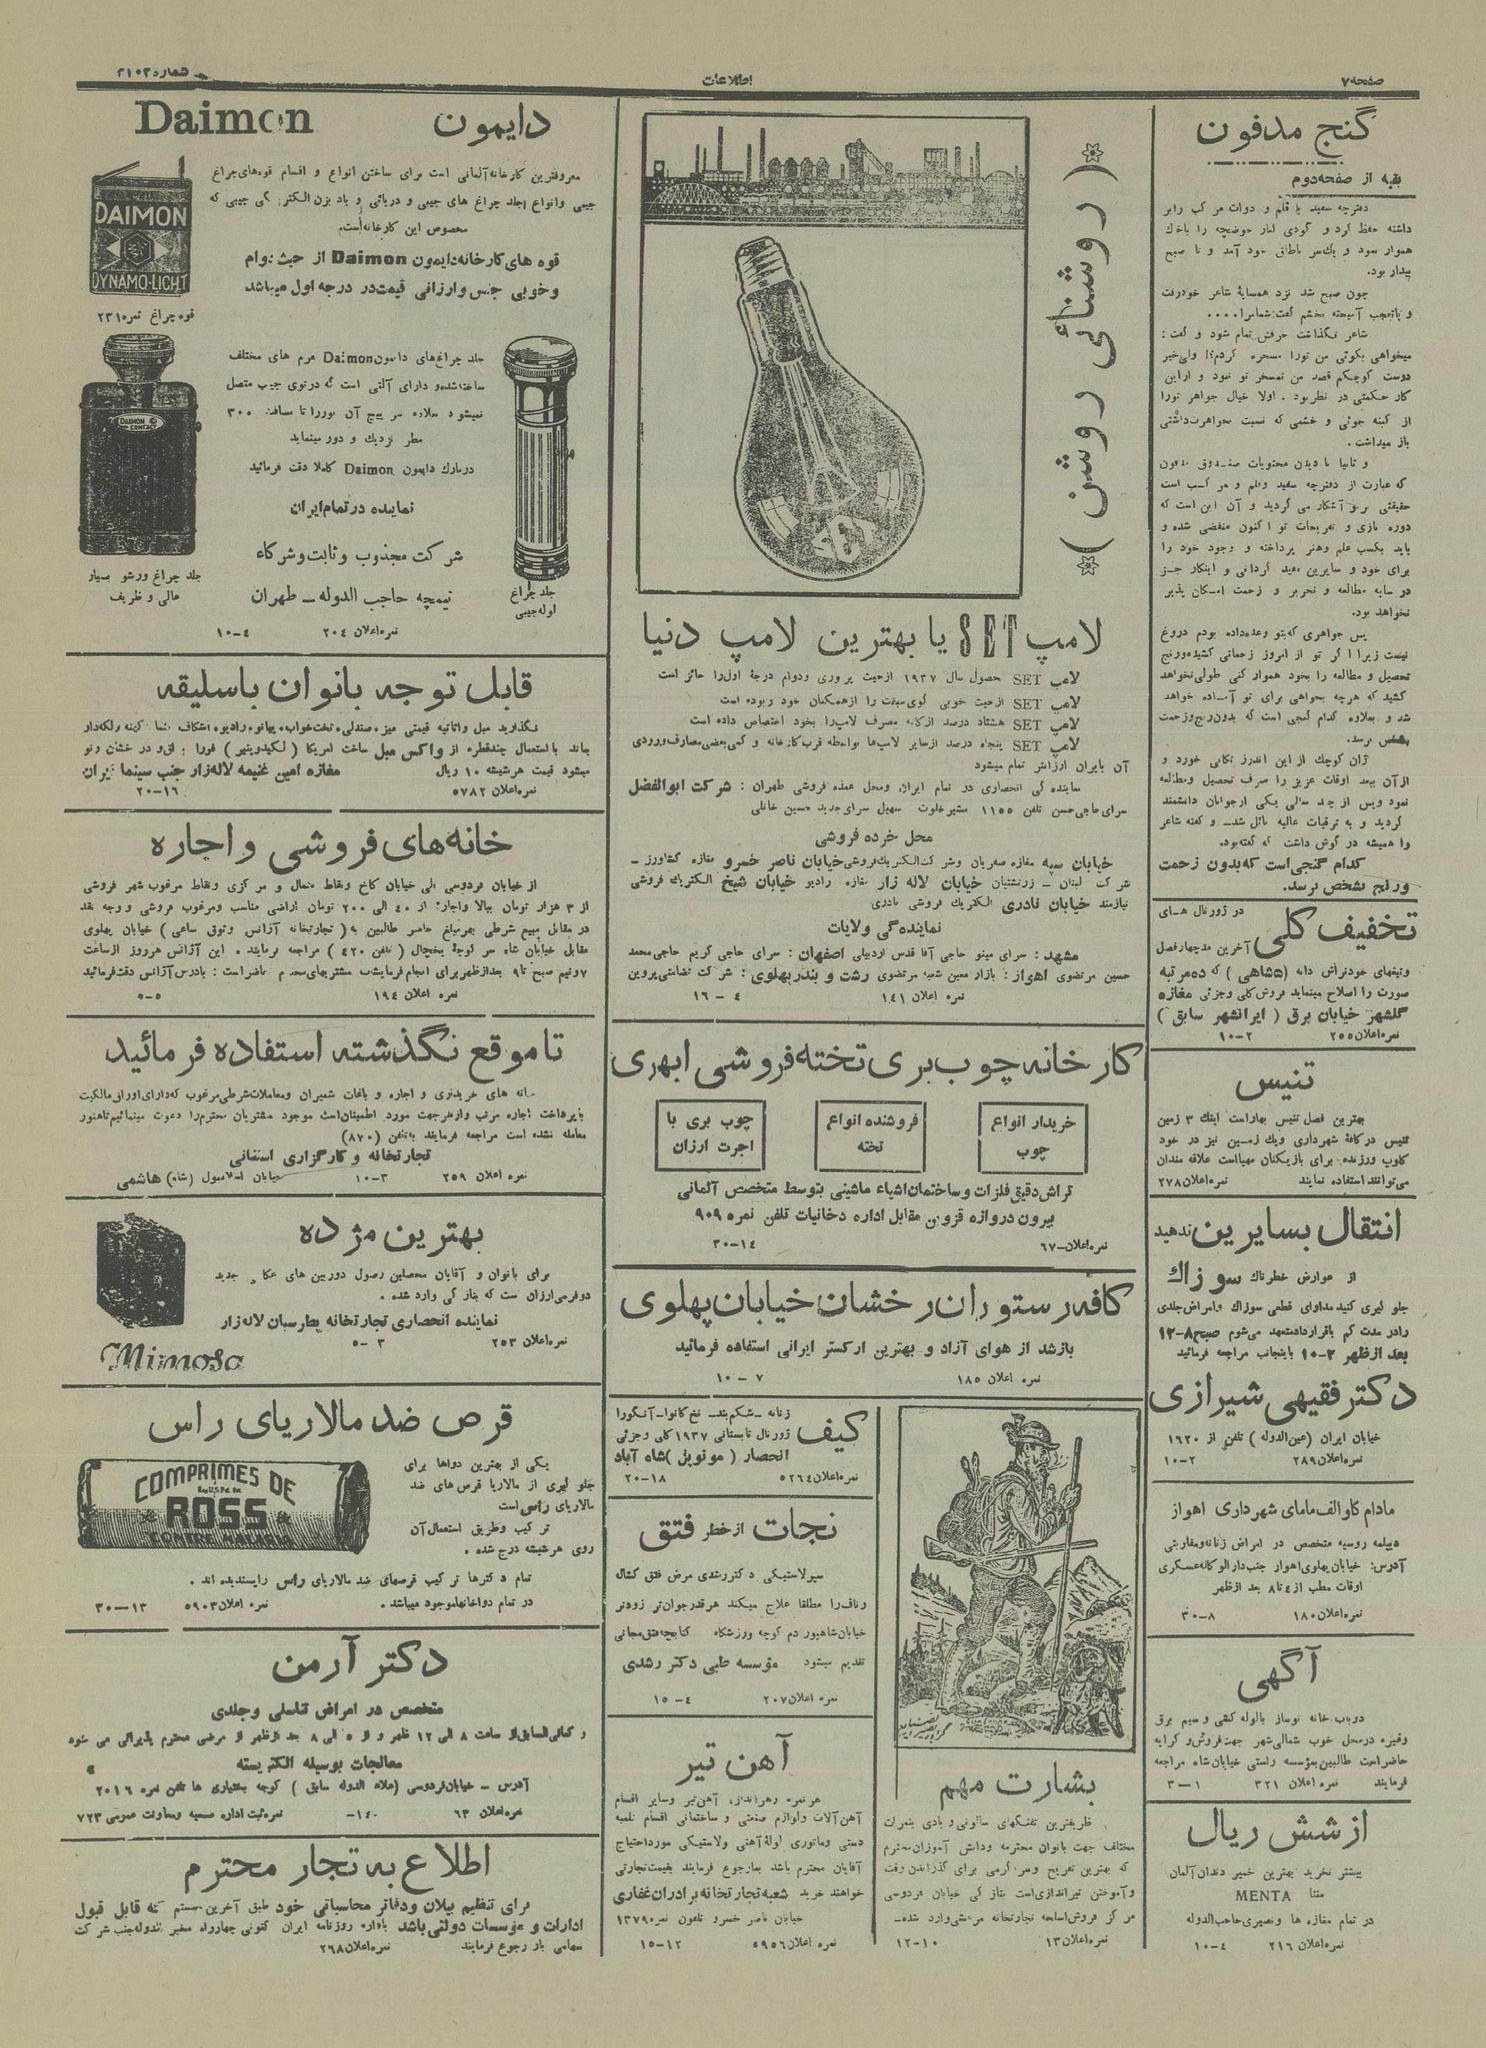 صفحه ۷
اطلاعات
شماره ۳۱۰۲
گنج مدفون
بقیه از صفحه دوم
دفترچه سفید با قلم و دوات مرکب را بر
بیدار بود.
چون صبح شد نزد همسایهٔ شاعر خود رفت
شاعر نگذاشت حرفش تمام شود و گفت :
میخواهی بگوئی من تورا مسخره کردم؟! ولی خیر
دوست کوچکم قصد من تمسخر تو نبود و از این
باز میداشت.
که عبارت از دفترچه سفید و قلم و مرکب است
حقیقتی بر تو آشکار می گردید و آن این است که
دوره بازی و تفریحات تو اکنون منقضی شده و
باید بکسب علم و هنر پرداخته و وجود خود را
برای خود و سایرین مفید گردانی و اینکار جز
در سایه مطالعه و تحریر و زحمت امکان پذیر
نخواهد بود.
پس جواهری که بتو وعده داده بودم دروغ
نیست زیرا اگر تو از امروز زحماتی کشیده و رنج
تحصیل و مطالعه را بخود هموار کنی طولی نخواهد
کشید که هرچه بخواهی برای تو آماده خواهد
شد و بعلاوه کدام گنجی است که بدون رنج و زحمت
بشخص برسد.
ژان کوچک از این اندرز تکانی خورد و
از آن ببعد اوقات عزیز را صرف تحصیل و مطالعه
نمود و پس از چند سالی یکی از جوانان دانشمند
گردید و به ترقیات عالیه نائل شد و گفته شاعر
را همیشه در گوش داشت که گفته بود.
کدام گنجی است که بدون زحمت
و رنج بشخص برسد.
تخفیف کلی در ژورنال های
آخرین مد چهار فصل
و تیغهای خودتراش دانه (۵شاهی) که ده مرتبه
صورت را اصلاح مینماید فروش کلی و جزئی مغازه
گلشهر خیابان برق ( ایرانشهر سابق )
نمره اعلان ۲۵۵ ۲-۱۰
تنیس
بهترین فصل تنیس بهار است اینک ۳ زمین
تنیس در کافه شهرداری و یک زمین نیز در خود
کلوپ ورزنده برای بازیکنان مهیا است علاقه مندان
می توانند استفاده نمایند نمره اعلان ۲۷۸
انتقال بسایرین ندهید
از عوارض خطرناک سوزاک
جلو گیری کنید مداوای قطعی سوزاک و امراض جلدی
را در مدت کم با قرارداد متعهد می شوم صبح ۸-۱۲
بعد از ظهر ۲-۱۰ باینجانب مراجعه فرمائید
دکتر فقیهی شیرازی
خیابان ایران (عین الدوله) تلفن از ۱۶۲۰
نمره اعلان ۲۸۹ ۲-۱۰
مادام کاوالف مامای شهرداری اهواز
دیپلمه روسیه متخصص در امراض زنانه و مقاربتی
آدرس: خیابان پهلوی اهواز جنب دارالوکاله عسکری
اوقات مطب از ۴ تا ۸ بعد از ظهر
نمره اعلان ۱۸۰ ۸-۳۰
آگهی
دو باب خانه نوساز با لوله کشی و سیم برق
و غیره در محل خوب شمالی شهر جهت فروش و کرایه
حاضر است طالبین بمؤسسه راستی خیابان شاه مراجعه
فرمایند نمره اعلان ۳۲۱ ۱-۳
از شش ریال
بیشتر نخرید بهترین خمیر دندان آلمان
منتا MENTA
در تمام مغازه ها و نصیری حاجب الدوله
نمره اعلان ۲۱۶ ۴-۱۰
( روشنائی روشن )
SET
لامپ SET یا بهترین لامپ دنیا
لامپ SET محصول سال ۱۹۳۷ از حیث پر نوری و دوام درجهٔ اول را حائز است
لامپ SET از حیث خوبی گوی سبقت را از همگنان خود ربوده است
لامپ SET هشتاد درصد از کلیه مصرف لامپ را بخود اختصاص داده است
لامپ SET پنجاه درصد از سایر لامپ ها بواسطه قرب کارخانه و کمی بعضی مصارف ورودی
آن بایران ارزانتر تمام میشود
نماینده گی انحصاری در تمام ایران و محل عمده فروشی طهران : شرکت ابوالفضل
سرای حاجی حسن تلفن ۱۱۵۵ مشیر خلوت سهیل سرای جدید حسین خانی
محل خرده فروشی
خیابان سپه مغازه صفریان و شرکت الکتریک فروشی خیابان ناصر خسرو مغازه کشاورز -
شرکت لبنان - زرتشتیان خیابان لاله زار مغازه رادیو خیابان شیخ الکتریک فروشی
نیازمند خیابان نادری الکتریک فروشی نادری
نماینده گی ولایات
مشهد : سرای مینو حاجی آقا قدس اردبیلی اصفهان: سرای حاجی کریم حاجی محمد
حسین مرتضوی اهواز : بازار معین شعبه مرتضوی رشت و بندر پهلوی: شرکت تضامنی پروین
نمره اعلان ۱۴۱ ۴ - ۱۶
کارخانه چوب بری تخته فروشی ابهری
خریدار انواع
چوب
فروشنده انواع
تخته
چوب بری با
اجرت ارزان
تراش دقیق فلزات و ساختمان اشیاء ماشینی بتوسط متخصص آلمانی
بیرون دروازه قزوین مقابل اداره دخانیات تلفن نمره ۹۰۹
نمره اعلان-۶۷ ۱۴-۳۰
کافه رستوران رخشان خیابان پهلوی
باز شد از هوای آزاد و بهترین ارکستر ایرانی استفاده فرمائید
نمره اعلان ۱۸۵ ۷ - ۱۰
کیف
زنانه - شکم بند - نخ کانوا - آنگورا
ژورنال تابستانی ۱۹۳۷ کلی و جزئی
انحصار ( مونوپل ) شاه آباد
نمره اعلان ۵۲۶۴ ۱۸-۲۰
نجات از خطر فتق
سیر لاستیکی دکتر رشدی مرض فتق کشاله
و ناف را مطلقا علاج میکند هر قدر جوان تر زودتر
خیابان شاهپور دم کوچه ورزشگاه کتابچه فتق مجانی
تقدیم میشود مؤسسه طبی دکتر رشدی
نمره اعلان ۲۰۷ ۴-۱۵
آهن تیر
آهن آلات و لوازم صنعتی و ساختمانی اقسام تلمبه
دستی و ماتوری لولهٔ آهنی و لاستیکی مورد احتیاج
آقایان محترم باشد بما رجوع فرمایند بقیمت تجارتی
خواهند خرید شعبه تجارتخانه برادران غفاری
خیابان ناصر خسرو تلفون نمره ۱۳۷۹
نمره اعلان ۵۹۵۶ ۱۲-۱۵
بشارت مهم
ظریفترین تفنگهای سالونی و بادی بنمرات
مختلف جهت بانوان محترمه و دانش آموزان محترم
که بهترین تفریح و سرگرمی برای گذراندن وقت
و آموختن تیراندازی است بتازگی خیابان فردوسی
مرکز فروش اسلحه تجارتخانه مرعشی وارد شده-
نمره اعلان ۱۳ ۱۰-۱۲
دایمون Daimon
معروفترین کارخانه آلمانی است برای ساختن انواع و اقسام قوه های چراغ
جیبی و انواع جلد چراغ های جیبی و دریائی و باد بزن الکتریکی جیبی که
مخصوص این کارخانه است.
قوه های کارخانه دایمون Daimon از حیث دوام
و خوبی جنس و ارزانی قیمت در درجه اول میباشد
DAIMON
DYNAMO-LICHT
قوه چراغ نمره ۲۳۱
جلد چراغهای دایمون Daimon فرم های مختلف
ساخته شده و دارای آلتی است که در توی جیب متصل
نمیشود بعلاوه سر پیچ آن نور را تا مسافت ۳۰۰
مطر نزدیک و دور مینماید
در مارک دایمون Daimon کاملا دقت فرمائید
نماینده در تمام ایران
شرکت مجذوب و ثابت و شرکاء
تیمچه حاجب الدوله - طهران
DAIMON
CONTACT
جلد چراغ ورشو بسیار
عالی و ظریف
جلد چراغ
لوله جیبی
نمره اعلان ۲۰۴ ۴-۱۰
قابل توجه بانوان باسلیقه
نگذارید مبل و اثاثیه قیمتی میز، صندلی، تخت خواب، پیانو، رادیو، اشکاف شما کهنه و لکه دار
بماند با استعمال چند قطره از واکس مبل ساخت امریکا (لیکید ونیر) فورا براق و درخشان و نو
میشود قیمت هر شیشه ۱۰ ریال مغازه امین غنیمه لاله زار جنب سینما ایران
نمره اعلان ۵۷۸۲ ۱۶-۲۰
خانه های فروشی و اجاره
از خیابان فردوسی الی خیابان کاخ و نقاط شمال و مرکزی و نقاط مرغوب شهر فروشی
از ۳ هزار تومان ببالا و اجاره از ۴۰ الی ۲۰۰ تومان اراضی مناسب و مرغوب فروشی و وجه نقد
در مقابل بیع شرطی بهر مبلغ حاضر طالبین به ( تجارتخانه آژانس وثوق ساعی ) خیابان پهلوی
مقابل خیابان شاه سر کوچه یخچال ( تلفن ۴۲۰ ) مراجعه فرمایند . این آژانس هر روز از ساعت
۷ و نیم صبح تا ۹ بعد از ظهر برای انجام فرمایشات مشتریهای محترم حاضر است : بآدرس آژانس دقت فرمائید
نمره اعلان ۱۹۴ ۵-۵
تا موقع نگذشته استفاده فرمائید
خانه های خریدنی و اجاره و باغات شمیران و معاملات شرطی مرغوب که دارای اوراق مالکیت
با پرداخت اجاره مرتب و از هر جهت مورد اطمینان است موجود مشتریان محترم را دعوت مینمائیم تا هنوز
معامله نشده است مراجعه فرمایند بتلفن (۸۷۰)
تجارتخانه و کارگزاری استقانی
نمره اعلان ۲۵۹ ۳-۱۰ خیابان اسلامبول (شاه) هاشمی
بهترین مژده
برای بانوان و آقایان محصلین رسول دوربین های عکاسی جدید
دوفرمی ارزان است که بتازگی وارد شده .
نماینده انحصاری تجارتخانه پطرسیان لاله زار
نمره اعلان ۲۵۳ ۳-۵
Mimosa
قرص ضد مالاریای راس
COMPRIMES DE
ROSS
یکی از بهترین دواها برای
جلو گیری از مالاریا قرص های ضد
مالاریای راس است
ترکیب و طریق استعمال آن
روی هر شیشه درج شده .
تمام دکترها ترکیب قرصهای ضد مالاریای راس را پسندیده اند .
در تمام دواخانها موجود میباشد . نمره اعلان ۵۹۰۳ ۱۳-۳۰
دکتر آرمن
متخصص در امراض تناسلی و جلدی
کمافی السابق از ساعت ۸ الی ۱۲ ظهر و از ۵ الی ۸ بعد از ظهر از مرضی محترم پذیرائی می شود
معالجات بوسیله الکتریسته
آدرس - خیابان فردوسی (علاء الدوله سابق ) کوچه بختیاری ها تلفن نمره ۲۰۱۶
نمره اعلان ۶۳ ۱۴۰- نمره ثبت اداره صحیه و معاونت عمومی ۷۲۳
اطلاع به تجار محترم
برای تنظیم بیلان و دفاتر محاسباتی خود طبق آخرین سیستم که قابل قبول
ادارات و مؤسسات دولتی باشد باداره روزنامه ایران کنونی چهارراه مخبرالدوله جنب شرکت
سهامی بار رجوع فرمایند نمره اعلان ۲۶۸